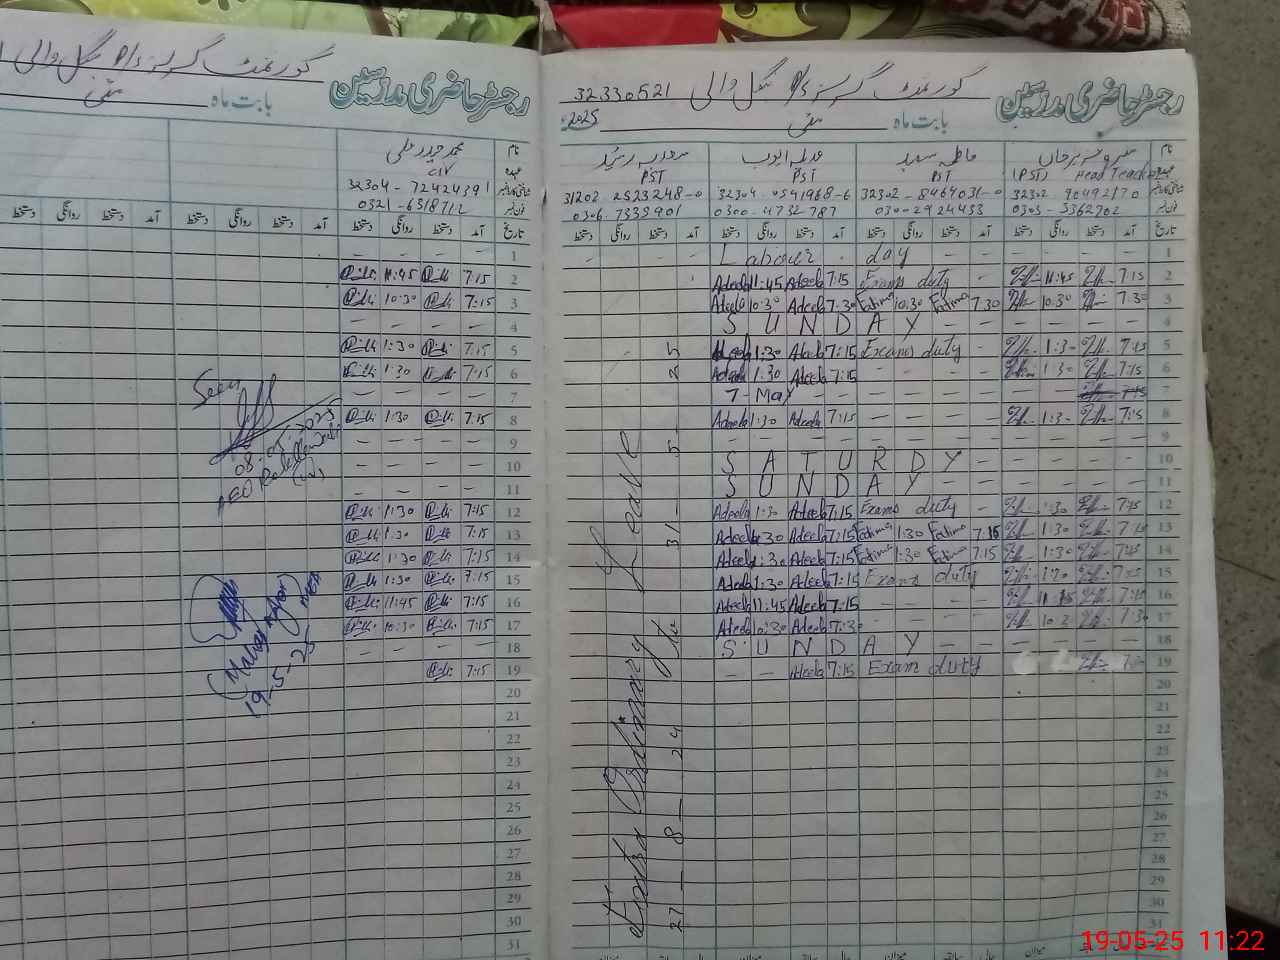 رجسٹر حاضری مدرسین گورنمنٹ گرلز P/S نگل والی 32330521
بابت ماہ مئی 2025
نام
PST PST PST Head Teach
31202 2523248-0 32304-0541968-6 32302-8464031-0
0306 7339901 0300-4732787 0300-2924433 0303-5362702
دستخط روانگی دستخط آمد دستخط روانگی دستخط آمد دستخط روانگی دستخط آمد دستخط روانگی دستخط آمد تاریخ
Labour day 1
Adeela 11:45 Adeela 7:15 Exams duty 11:45 7:15 2
Adeela 10:30 Adeela 7:30 Fatima 10:30 Fatima 7:30 10:30 7:30 3
SUNDAY 4
Adeela 1:30 Adeela 7:15 Exams duty 1:30 7:15 5
Adeela 1:30 Adeela 7:15 1:30 7:15 6
7-May 7:15 7
Adeela 1:30 Adeela 7:15 1:30 7:15 8
9
SATURDY 10
SUNDAY 11
Adeela 1:30 Adeela 7:15 Exams duty 1:30 7:15 12
Adeela 1:30 Adeela 7:15 Fatima 1:30 Fatima 7:15 1:30 7:15 13
Adeela 1:30 Adeela 7:15 Fatima 1:30 Fatima 7:15 1:30 7:15 14
Adeela 1:30 Adeela 7:15 Exams duty 1:30 7:15 15
Adeela 11:45 Adeela 7:15 7:15 16
Adeela 10:30 Adeela 7:30 7:30 17
SUNDAY 18
Adeela 7:15 Exam duty 19
20
21
22
23
24
25
26
27
28
29
30
31
Extra Ordinary Leave
27-8-24 to 31-5-25
رجسٹر حاضری مدرسین گورنمنٹ گرلز P/S نگل والی
بابت ماہ مئی
محمد حیدر علی نام
C IV
32304-72424391
0321-6318712
دستخط روانگی دستخط آمد دستخط روانگی دستخط آمد دستخط روانگی دستخط آمد تاریخ
1
11:45 7:15 2
10:30 7:15 3
4
1:30 7:15 5
1:30 7:15 6
7
1:30 7:15 8
9
10
11
1:30 7:15 12
1:30 7:15 13
1:30 7:15 14
1:30 7:15 15
11:45 7:15 16
10:30 7:15 17
18
7:15 19
20
21
22
23
24
25
26
27
28
29
30
31
Seen
AEO
19-5-25
19-05-25 11:22